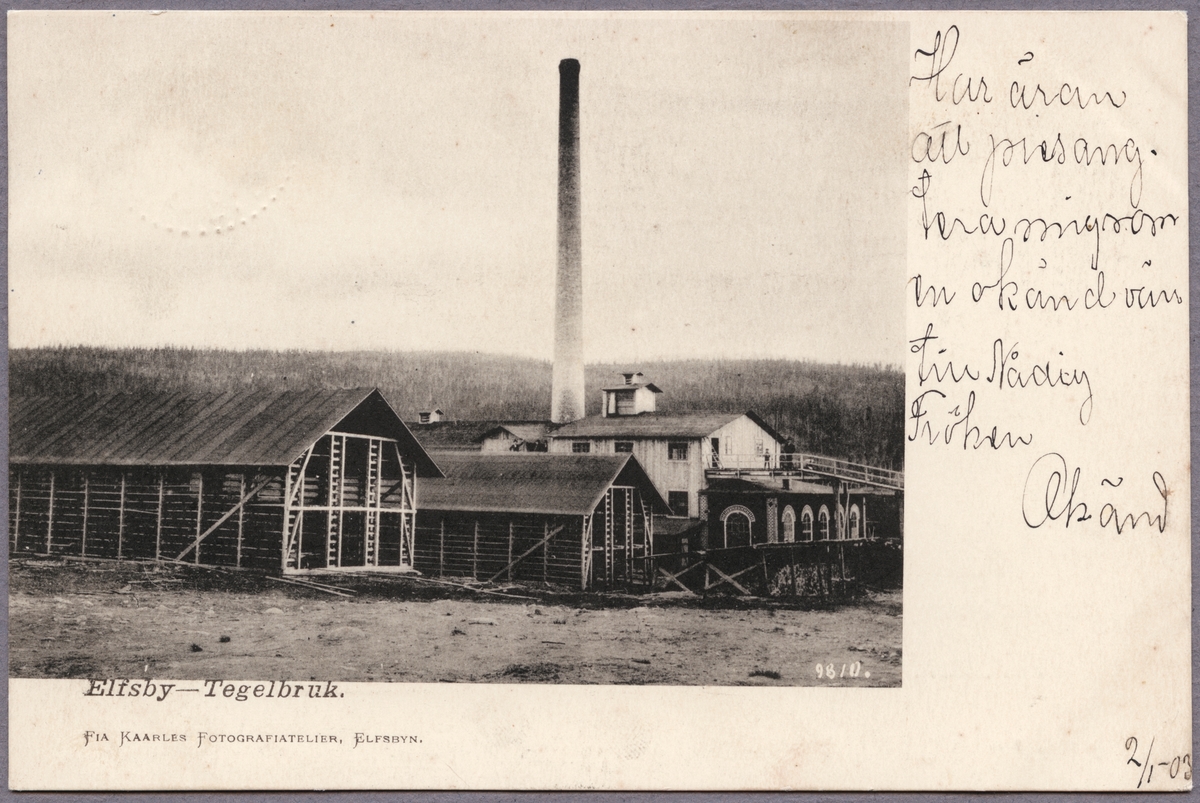 Har äran
att presang-
tera mig som
en okänd vän
till Nådig
Fröken
Okänd
9810.
Elfsby—Tegelbruk.
Fia Kaarles Fotografiatelier, Elfsbyn.
2/1-03